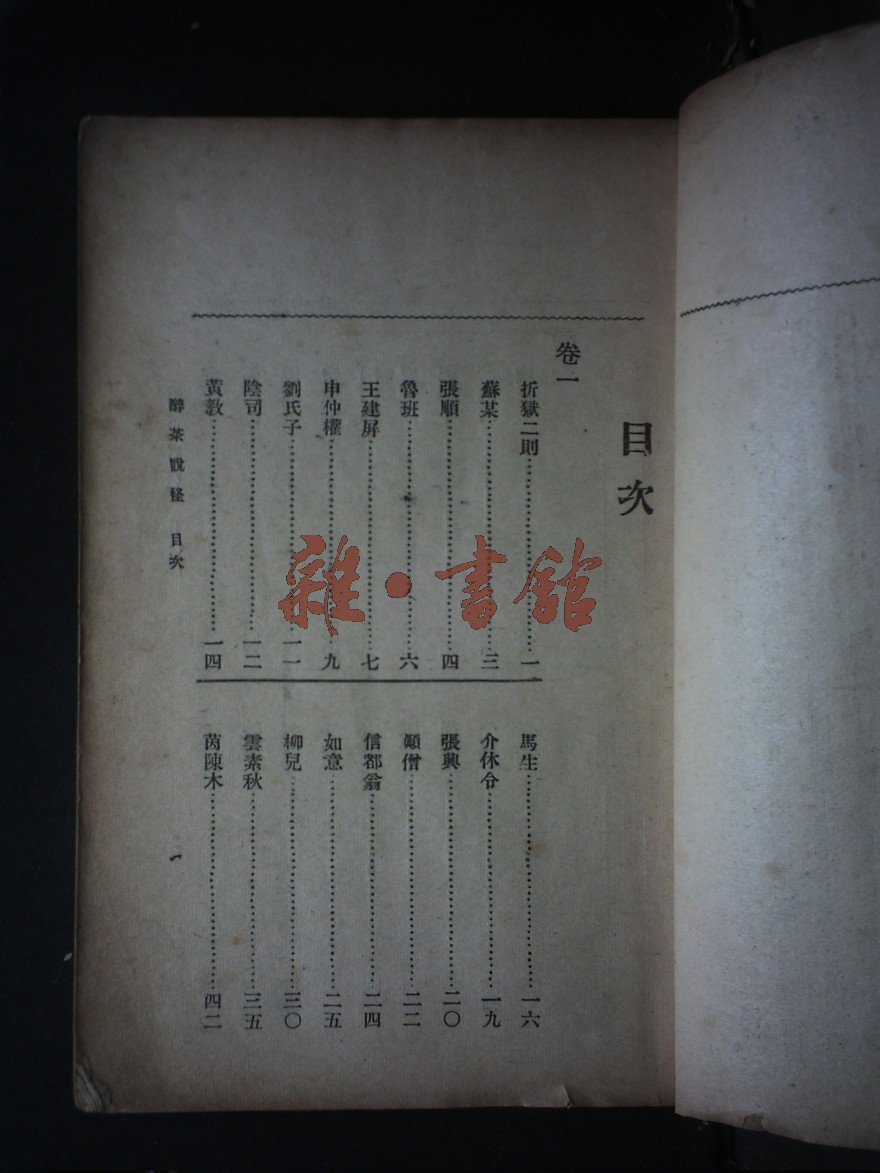 目次
卷一
折獄二則……一
蘇某……三
張順……四
魯班……六
王建屏……七
申仲權……九
劉氏子……一一
陰司……一二
黃教……一四
馬生……一六
介休令……一九
張興……二〇
顛僧……二二
信都翁……二四
如意……二五
柳兒……三〇
雲素秋……三五
茵陳木……四二
醉茶說怪 目次
一
雜·書館